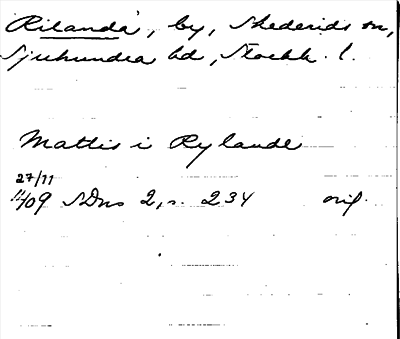 Rilanda, by, Skederids sn,
Sjuhundra hd, Stockh. l.
Mattis i Rylande
27/11
1409 SDns 2, s. 234 orig.